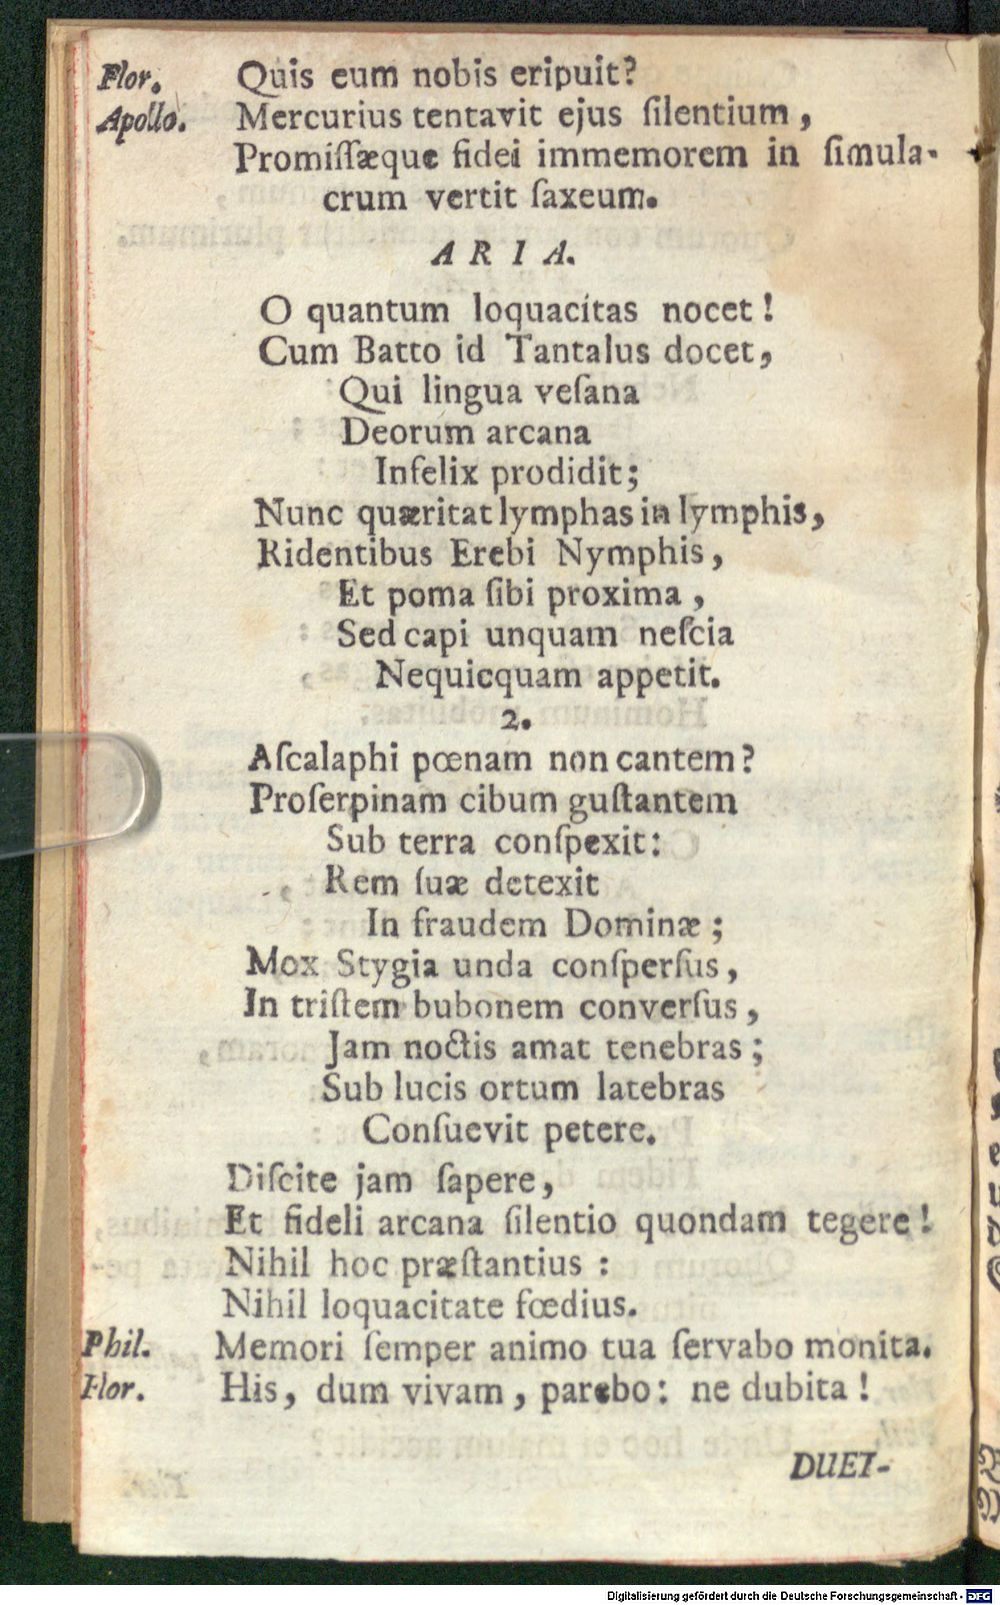 Flor. Quis eum nobis eripuit?
Apollo. Mercurius tentavit ejus ſilentium,
Promiſſæque fidei immemorem in ſimula-
crum vertit ſaxeum.
ARIA.
O quantum loquacitas nocet!
Cum Batto id Tantalus docet,
Qui lingua veſana
Deorum arcana
Infelix prodidit;
Nunc quæritat lymphas in lymphis,
Ridentibus Erebi Nymphis,
Et poma ſibi proxima,
Sed capi unquam neſcia
Nequicquam appetit.
2.
Aſcalaphi pœnam non cantem?
Proſerpinam cibum guſtantem
Sub terra conſpexit:
Rem ſuæ detexit
In fraudem Dominæ;
Mox Stygia unda conſperſus,
In triſtem bubonem converſus,
Jam noctis amat tenebras;
Sub lucis ortum latebras
Conſuevit petere.
Diſcite jam ſapere,
Et fideli arcana ſilentio quondam tegere!
Nihil hoc præſtantius:
Nihil loquacitate fœdius.
Phil. Memori ſemper animo tua ſervabo monita.
Flor. His, dum vivam, parebo: ne dubita!
DUET-
Digitalisierung gefördert durch die Deutsche Forschungsgemeinschaft - DFG